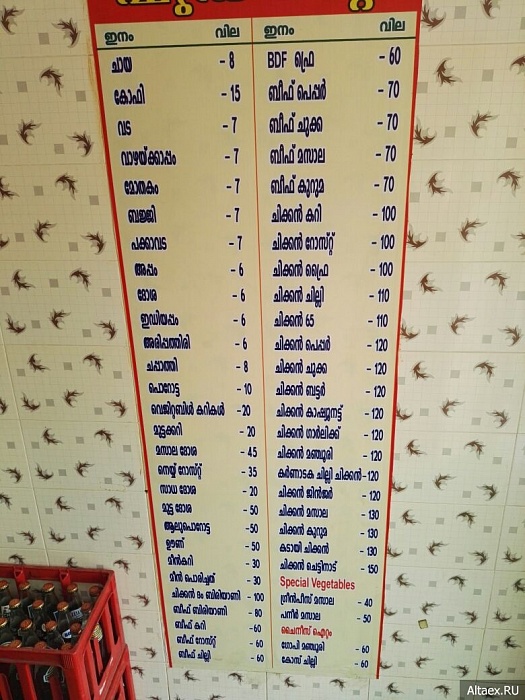 ഇനം വില
ചായ - 8
കോഫി - 15
വട - 7
വാഴയ്ക്കാപ്പം - 7
മോതകം - 7
ബജ്ജി - 7
പക്കാവട - 7
അപ്പം - 6
ദോശ - 6
ഇഡിയപ്പം - 6
അരിപ്പത്തിരി - 6
ചപ്പാത്തി - 8
പൊറോട്ട - 10
വെജിറ്റബിൾ കറികൾ - 20
മുട്ടക്കറി - 20
മസാല ദോശ - 45
നെയ്യ് റോസ്റ്റ് - 35
സാധ ദോശ - 20
മുട്ട ദോശ - 50
ആലുപൊറോട്ട - 50
ഊണ് - 50
മീൻകറി - 30
മീൻ പൊരിച്ചത് - 30
ചിക്കൻ ദം ബിരിയാണി - 100
ബീഫ് ബിരിയാണി - 80
ബീഫ് കറി - 60
ബീഫ് റോസ്റ്റ് - 60
ബീഫ് ചില്ലി - 60
ഇനം വില
BDF ഫ്രൈ - 60
ബീഫ് പെപ്പർ - 70
ബീഫ് ചുക്ക - 70
ബീഫ് മസാല - 70
ബീഫ് കുറുമ - 70
ചിക്കൻ കറി - 100
ചിക്കൻ റോസ്റ്റ് - 100
ചിക്കൻ ഫ്രൈ - 100
ചിക്കൻ ചില്ലി - 110
ചിക്കൻ 65 - 110
ചിക്കൻ പെപ്പർ - 120
ചിക്കൻ ചുക്ക - 120
ചിക്കൻ ബട്ടർ - 120
ചിക്കൻ കാഷ്യുനട്ട് - 120
ചിക്കൻ ഗാർലിക്ക് - 120
ചിക്കൻ മഞ്ചൂരി - 120
കർണാടക ചില്ലി ചിക്കൻ - 120
ചിക്കൻ ജിൻജർ - 120
ചിക്കൻ മസാല - 130
ചിക്കൻ കുറുമ - 130
കടായി ചിക്കൻ - 130
ചിക്കൻ ചെട്ടിനാട് - 150
Special Vegetables
ഗ്രീൻപീസ് മസാല - 40
പനീർ മസാല - 50
ചൈനീസ് ഐറ്റം
ഗോപി മഞ്ചൂരി - 60
കോസ് ചില്ലി - 60
Altaex.RU